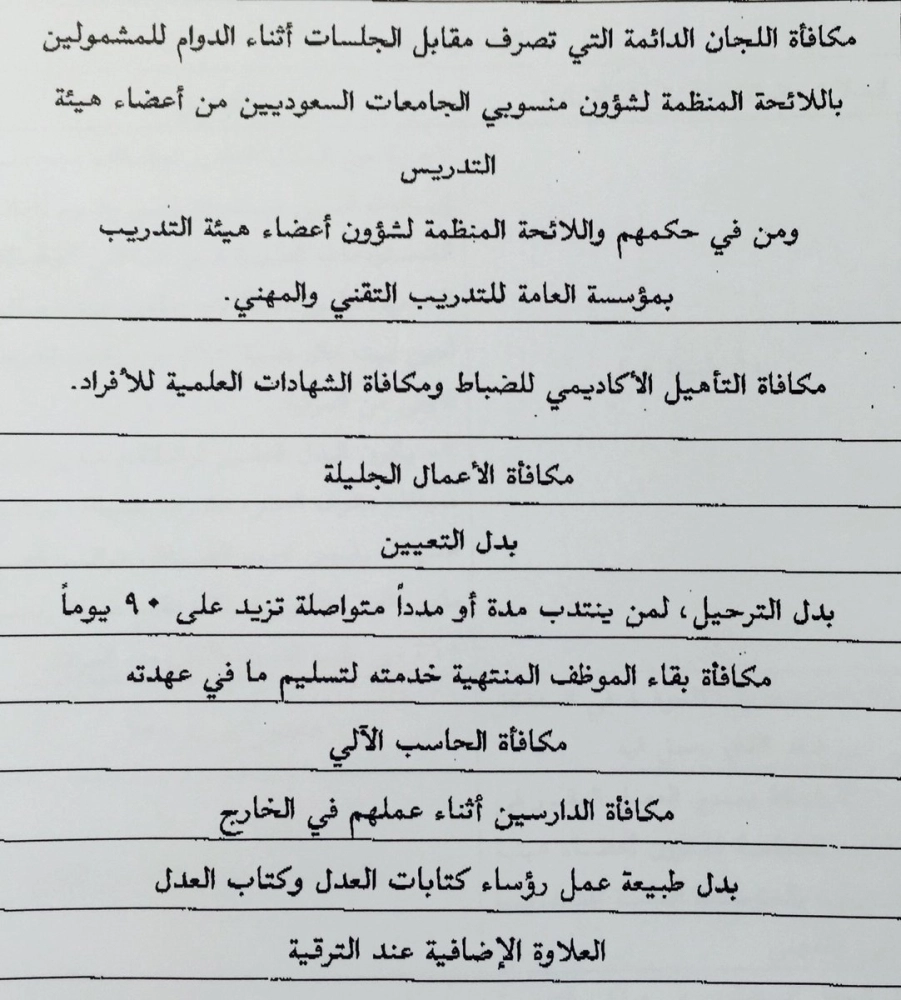 مكافأة اللجان الدائمة التي تصرف مقابل الجلسات أثناء الدوام للمشمولين
باللائحة المنظمة لشؤون منسوبي الجامعات السعوديين من أعضاء هيئة
التدريس
ومن في حكمهم واللائحة المنظمة لشؤون أعضاء هيئة التدريب
بمؤسسة العامة للتدريب التقني والمهني.
مكافاة التأهيل الأكاديمي للضباط ومكافاة الشهادات العلمية للأفراد.
مكافأة الأعمال الجليلة
بدل التعيين
بدل الترحيل، لمن ينتدب مدة أو مدداً متواصلة تزيد على ٩٠ يوماً
مكافأة بقاء الموظف المنتهية خدمته لتسليم ما في عهدته
مكافأة الحاسب الآلي
مكافأة الدارسين أثناء عملهم في الخارج
بدل طبيعة عمل رؤساء كتابات العدل وكتاب العدل
العلاوة الإضافية عند الترقية